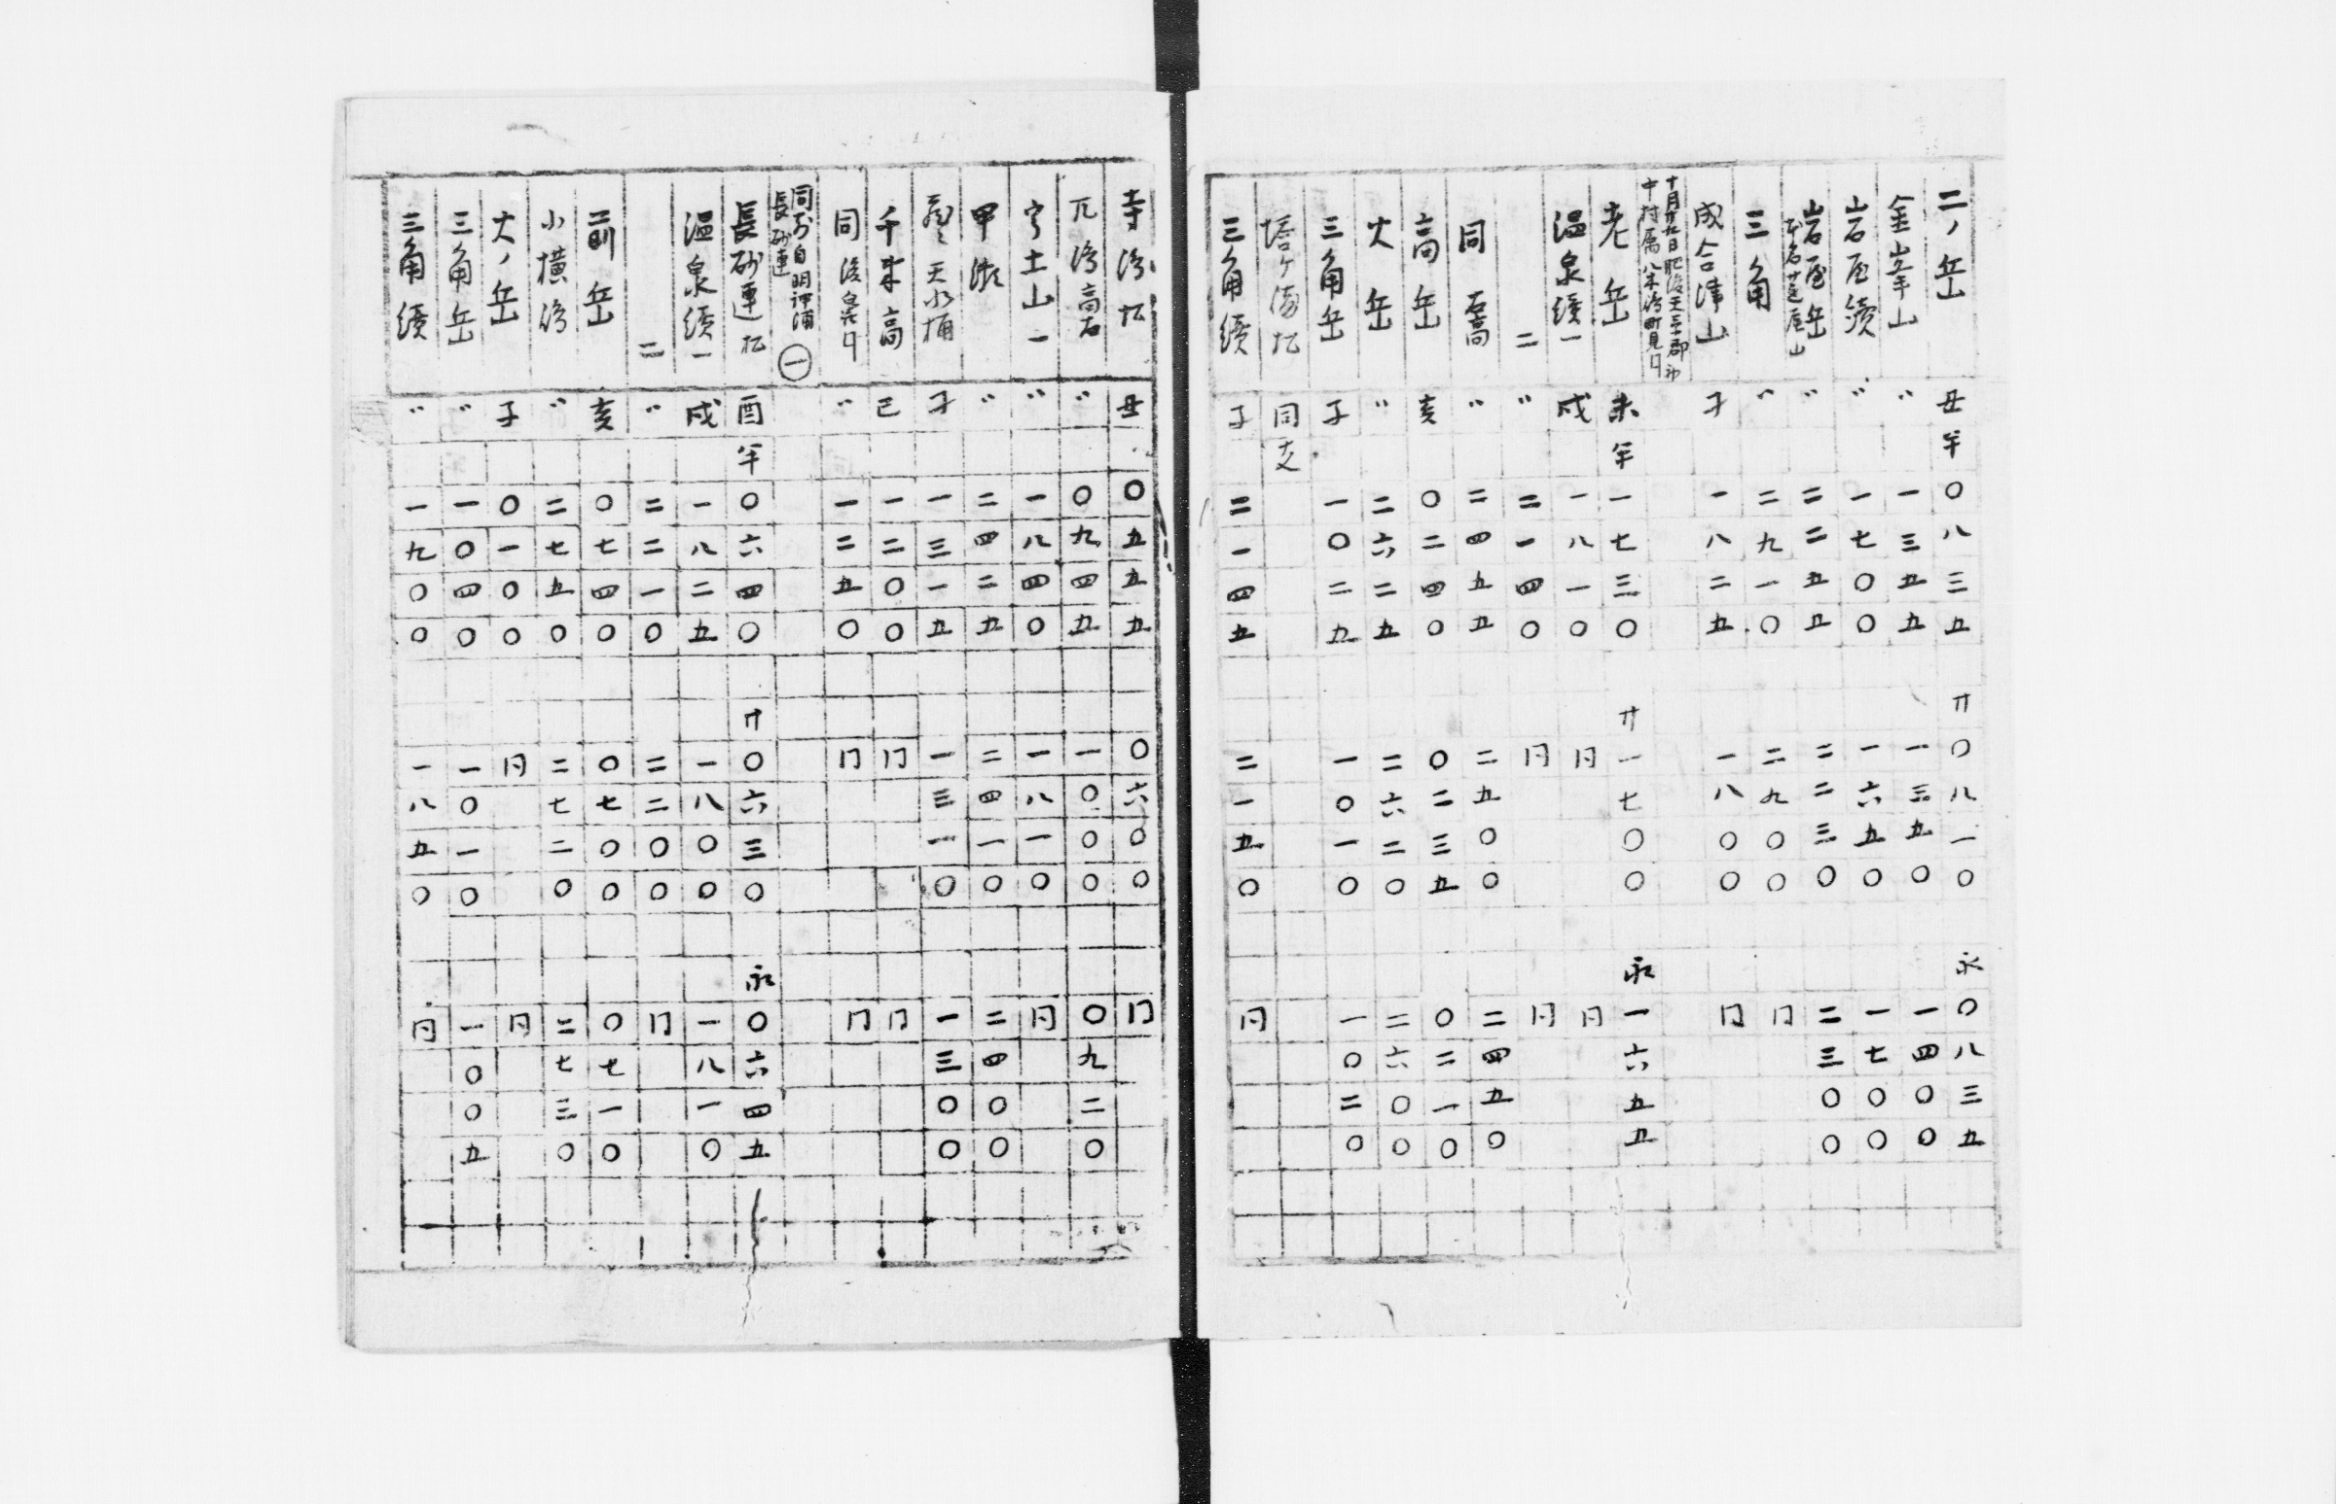 二ノ岳 丑年〇八三五 廾〇八一〇 永〇八三五
金峯山 〃一三五五 一三五〇 一四〇〇
岩屋續 〃一七〇〇 一六五〇 一七〇〇
岩屋岳 〃二二五五 二二三〇 二三〇〇
三角 〃二九一〇 二九〇〇 冂
成合津山 子一八二五 一八〇〇 冂
十月廿九日肥後天草郡
中村属八木濱町見口
老岳 未年一七三〇 廾一七〇〇 永一六五五
温泉續一 戌一八一〇 冃 冃
二 〃二一四〇 冃 冃
同 高 〃二四五五 二五〇〇 二四五〇
高岳 亥〇二四〇 〇二三五 〇二一〇
大岳 〃二六二五 二六二〇 二六〇〇
三角岳 子一〇二五 一〇一〇 一〇二〇
同支
三角續 子二一四五 二一五〇 冃
丑〇五五五 〇六〇〇 冂
〃〇九四五 一〇〇〇 〇九二〇
宇土山一 〃一八四〇 一八一〇 冃
甲 〃二四二五 二四一〇 二四〇〇
天水桶 子一三一五 一三一〇 一三〇〇
千 高 巳一二〇〇 冂 冂
同 〃一二五〇 冂 冂
同所自明神浦
長砂連 一
長砂連 酉年〇六四〇 廾〇六三〇 永〇六四五
温泉續一 戌一八二五 一八〇〇 一八一〇
二 〃二二一〇 二二〇〇 冂
前岳 亥〇七四〇 〇七〇〇 〇七一〇
小横 〃二七五〇 二七二〇 二七三〇
大ノ岳 子〇一〇〇 冃 冃
三角岳 〃一〇四〇 一〇一〇 一〇〇五
三角續 〃一九〇〇 一八五〇 冃